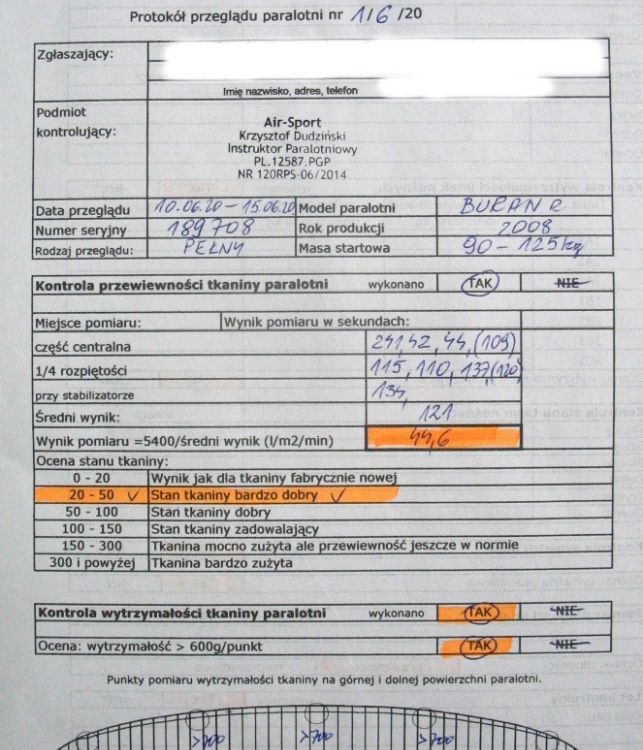 Protokół przeglądu paralotni nr 1/6 /20
Zgłaszający:
Imię nazwisko, adres, telefon
Podmiot kontrolujący:
Air-Sport
Krzysztof Dudziński
Instruktor Paralotniowy
PL.12587.PGP
NR 120RPS-06/2014
Data przeglądu 10.06.20 - 15.06.20 Model paralotni BURAN R.
Numer seryjny 189708 Rok produkcji 2008
Rodzaj przeglądu: PEŁNY Masa startowa 90 - 125kg
Kontrola przewiewności tkaniny paralotni wykonano TAK NIE
Miejsce pomiaru: Wynik pomiaru w sekundach:
część centralna 42, 44, (109)
1/4 rozpiętości 115, 110, 137, (120)
przy stabilizatorze 134,
Średni wynik: 121
Wynik pomiaru =5400/średni wynik (l/m2/min) 44,6
Ocena stanu tkaniny:
0 - 20 Wynik jak dla tkaniny fabrycznie nowej
20 - 50 ✓ Stan tkaniny bardzo dobry ✓
50 - 100 Stan tkaniny dobry
100 - 150 Stan tkaniny zadowalający
150 - 300 Tkanina mocno zużyta ale przewiewność jeszcze w normie
300 i powyżej Tkanina bardzo zużyta
Kontrola wytrzymałości tkaniny paralotni wykonano TAK NIE
Ocena: wytrzymałość > 600g/punkt TAK NIE
Punkty pomiaru wytrzymałości tkaniny na górnej i dolnej powierzchni paralotni.
>700 >700 >700